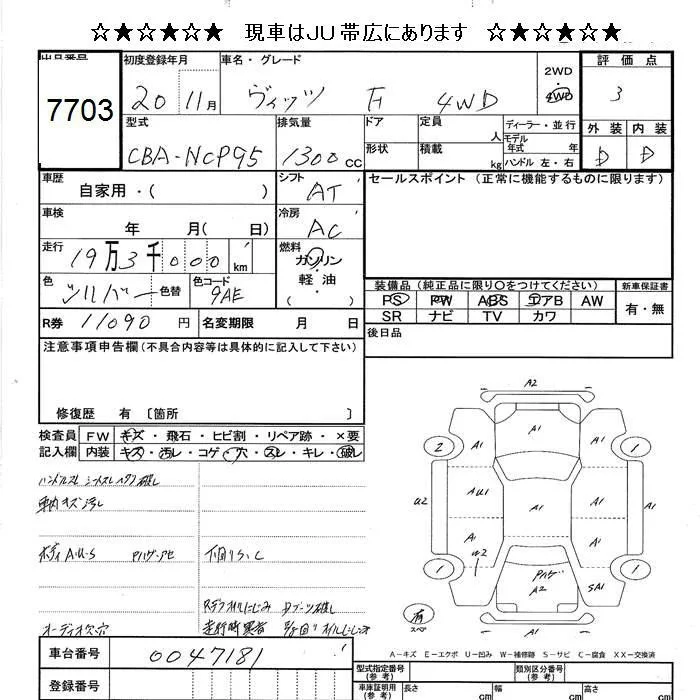 ☆★☆★☆★ 現車はJU帯広にあります ☆★☆★☆★
初度登録年月 車名・グレード 2WD 4WD 評価点
7703
20 11月 ヴィッツ F 4WD 3
型式 排気量 ドア 定員 人 ディーラー・並行 外装 内装
モデル年式 年
CBA-NCP95 1300cc 形状 積載 kg ハンドル 左・右 D D
車歴 シフト セールスポイント (正常に機能するものに限ります)
自家用・( ) AT
車検 年 月(日) 冷房 AC
走行 19万3千000km 燃料 ガソリン・軽油
( )
色 シルバー 色替 色コード 9AE
装備品 (純正品に限り○をつけてください) 新車保証書
PS PW ABS エアB AW 有・無
SR ナビ TV カワ
R券 11090円 名変期限 月 日 後日品
注意事項申告欄(不具合内容等は具体的に記入して下さい)
修復歴 有〔箇所 〕
検査員 FW キズ・飛石・ヒビ割・リペア跡・×要
記入欄 内装 キズ・汚レ・コゲ・穴・スレ・キレ・破レ
車内キズ汚レ
ボディA・U・S
下回りサビ
Rデフオイルにじみ Dブーツ破レ
オーディオ欠穴
A2
A1 A1 A1
2 1
U2 AU1 A1 A1
A1 W2 A1
1 A2 SA1 1
有 スペア A1
A-キズ E-エクボ U-凹み W-補修跡 S-サビ C-腐食 XX-交換済
車台番号 0047181
登録番号
型式指定番号(参考) 類別区分番号(参考)
車庫証明用(参考) 長さ cm 幅 cm 高さ cm